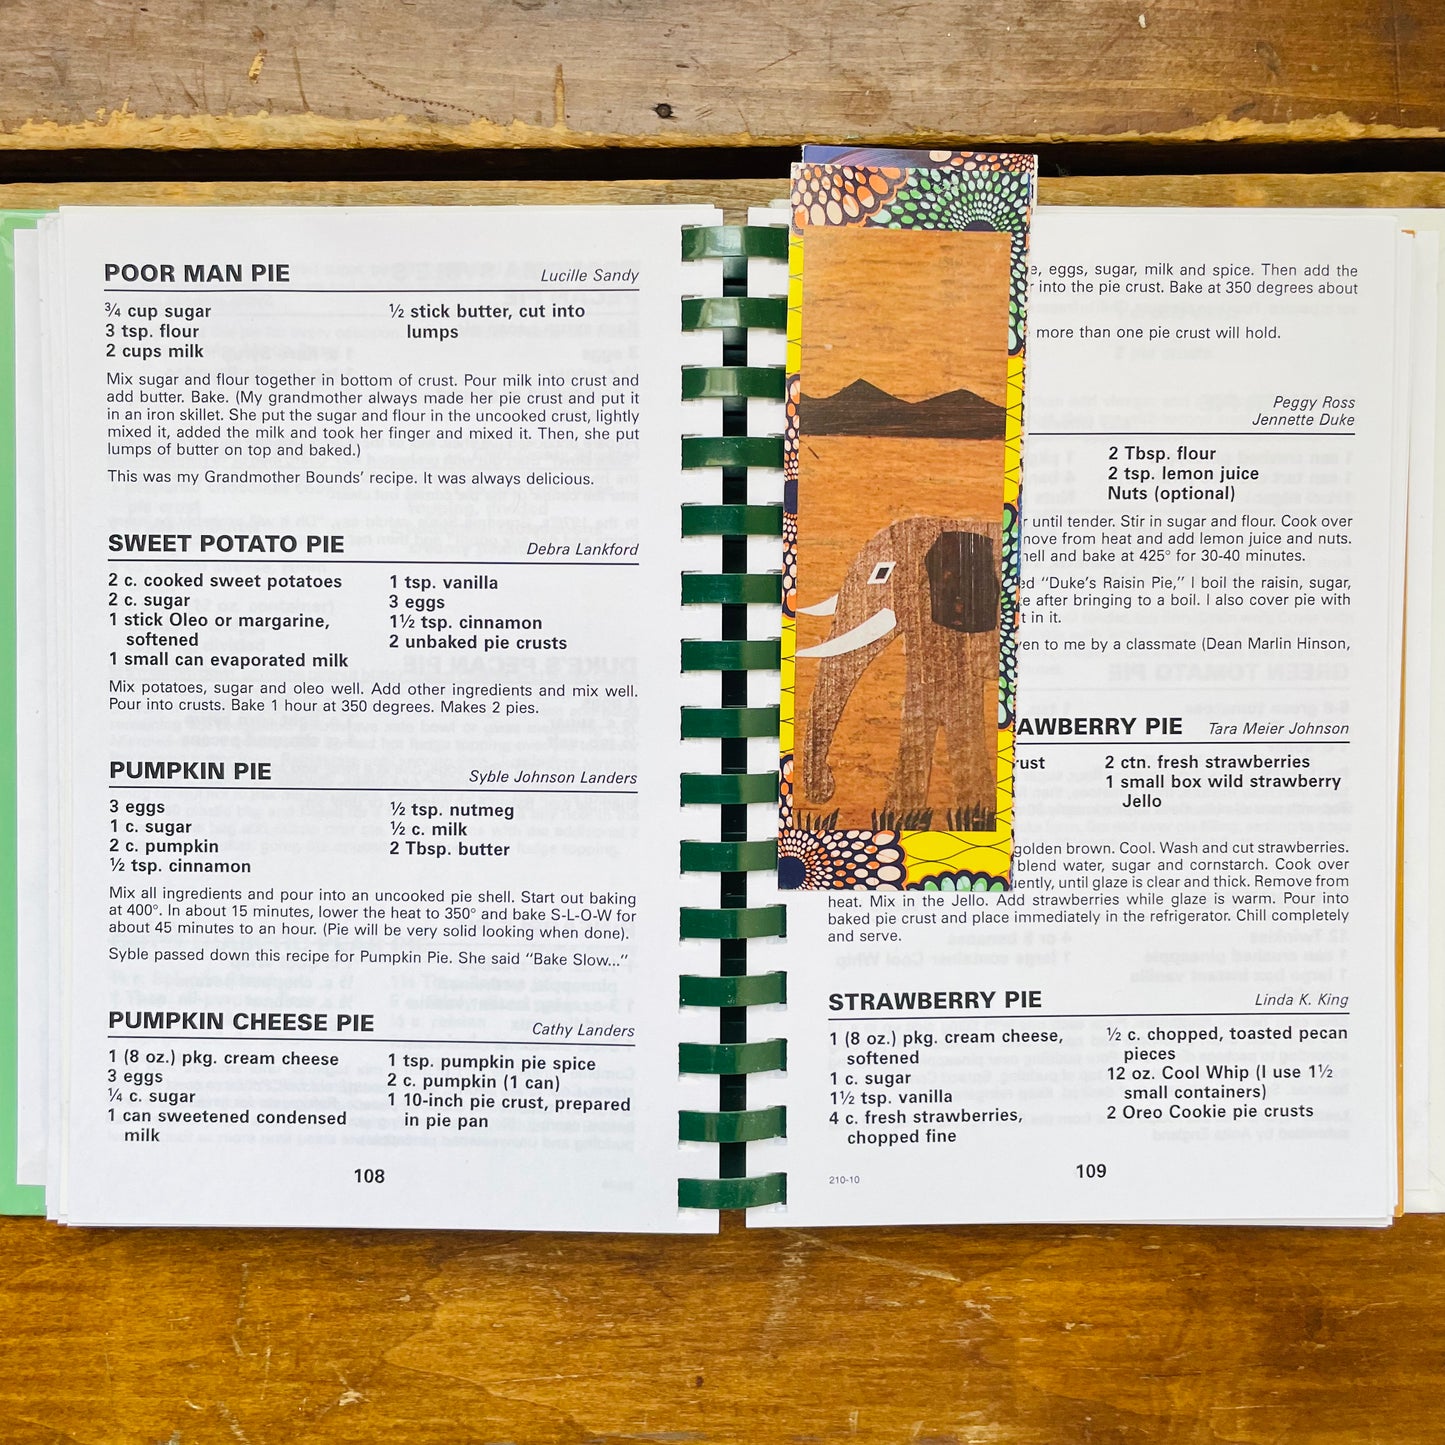 POOR MAN PIE Lucille Sandy
¾ cup sugar
3 tsp. flour
2 cups milk
½ stick butter, cut into
lumps
Mix sugar and flour together in bottom of crust. Pour milk into crust and
add butter. Bake. (My grandmother always made her pie crust and put it
in an iron skillet. She put the sugar and flour in the uncooked crust, lightly
mixed it, added the milk and took her finger and mixed it. Then, she put
lumps of butter on top and baked.)
This was my Grandmother Bounds' recipe. It was always delicious.
SWEET POTATO PIE Debra Lankford
2 c. cooked sweet potatoes
2 c. sugar
1 stick Oleo or margarine,
softened
1 small can evaporated milk
1 tsp. vanilla
3 eggs
1½ tsp. cinnamon
2 unbaked pie crusts
Mix potatoes, sugar and oleo well. Add other ingredients and mix well.
Pour into crusts. Bake 1 hour at 350 degrees. Makes 2 pies.
PUMPKIN PIE Syble Johnson Landers
3 eggs
1 c. sugar
2 c. pumpkin
½ tsp. cinnamon
½ tsp. nutmeg
½ c. milk
2 Tbsp. butter
Mix all ingredients and pour into an uncooked pie shell. Start out baking
at 400°. In about 15 minutes, lower the heat to 350° and bake S-L-O-W for
about 45 minutes to an hour. (Pie will be very solid looking when done).
Syble passed down this recipe for Pumpkin Pie. She said "Bake Slow..."
PUMPKIN CHEESE PIE Cathy Landers
1 (8 oz.) pkg. cream cheese
3 eggs
¼ c. sugar
1 can sweetened condensed
milk
1 tsp. pumpkin pie spice
2 c. pumpkin (1 can)
1 10-inch pie crust, prepared
in pie pan
108
eggs, sugar, milk and spice. Then add the
into the pie crust. Bake at 350 degrees about
more than one pie crust will hold.
Peggy Ross
Jennette Duke
2 Tbsp. flour
2 tsp. lemon juice
Nuts (optional)
until tender. Stir in sugar and flour. Cook over
move from heat and add lemon juice and nuts.
and bake at 425° for 30-40 minutes.
"Duke's Raisin Pie," I boil the raisin, sugar,
after bringing to a boil. I also cover pie with
in it.
to me by a classmate (Dean Marlin Hinson,
AWBERRY PIE Tara Meier Johnson
rust
2 ctn. fresh strawberries
1 small box wild strawberry
Jello
golden brown. Cool. Wash and cut strawberries.
blend water, sugar and cornstarch. Cook over
ently, until glaze is clear and thick. Remove from
heat. Mix in the Jello. Add strawberries while glaze is warm. Pour into
baked pie crust and place immediately in the refrigerator. Chill completely
and serve.
STRAWBERRY PIE Linda K. King
1 (8 oz.) pkg. cream cheese,
softened
1 c. sugar
1½ tsp. vanilla
4 c. fresh strawberries,
chopped fine
½ c. chopped, toasted pecan
pieces
12 oz. Cool Whip (I use 1½
small containers)
2 Oreo Cookie pie crusts
210-10
109